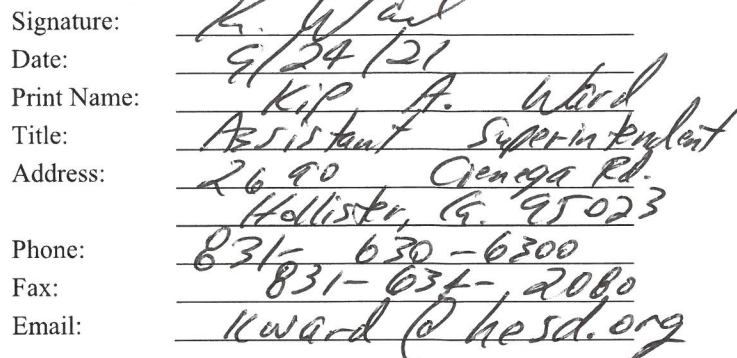 Signature: K. Ward
Date: 9/24/21
Print Name: Kip A. Ward
Title: Assistant Superintendent
Address: 2690 Cienega Rd.
Hollister, Ca. 95023
Phone: 831- 630-6300
Fax: 831- 634- 2080
Email: kward@hesd.org